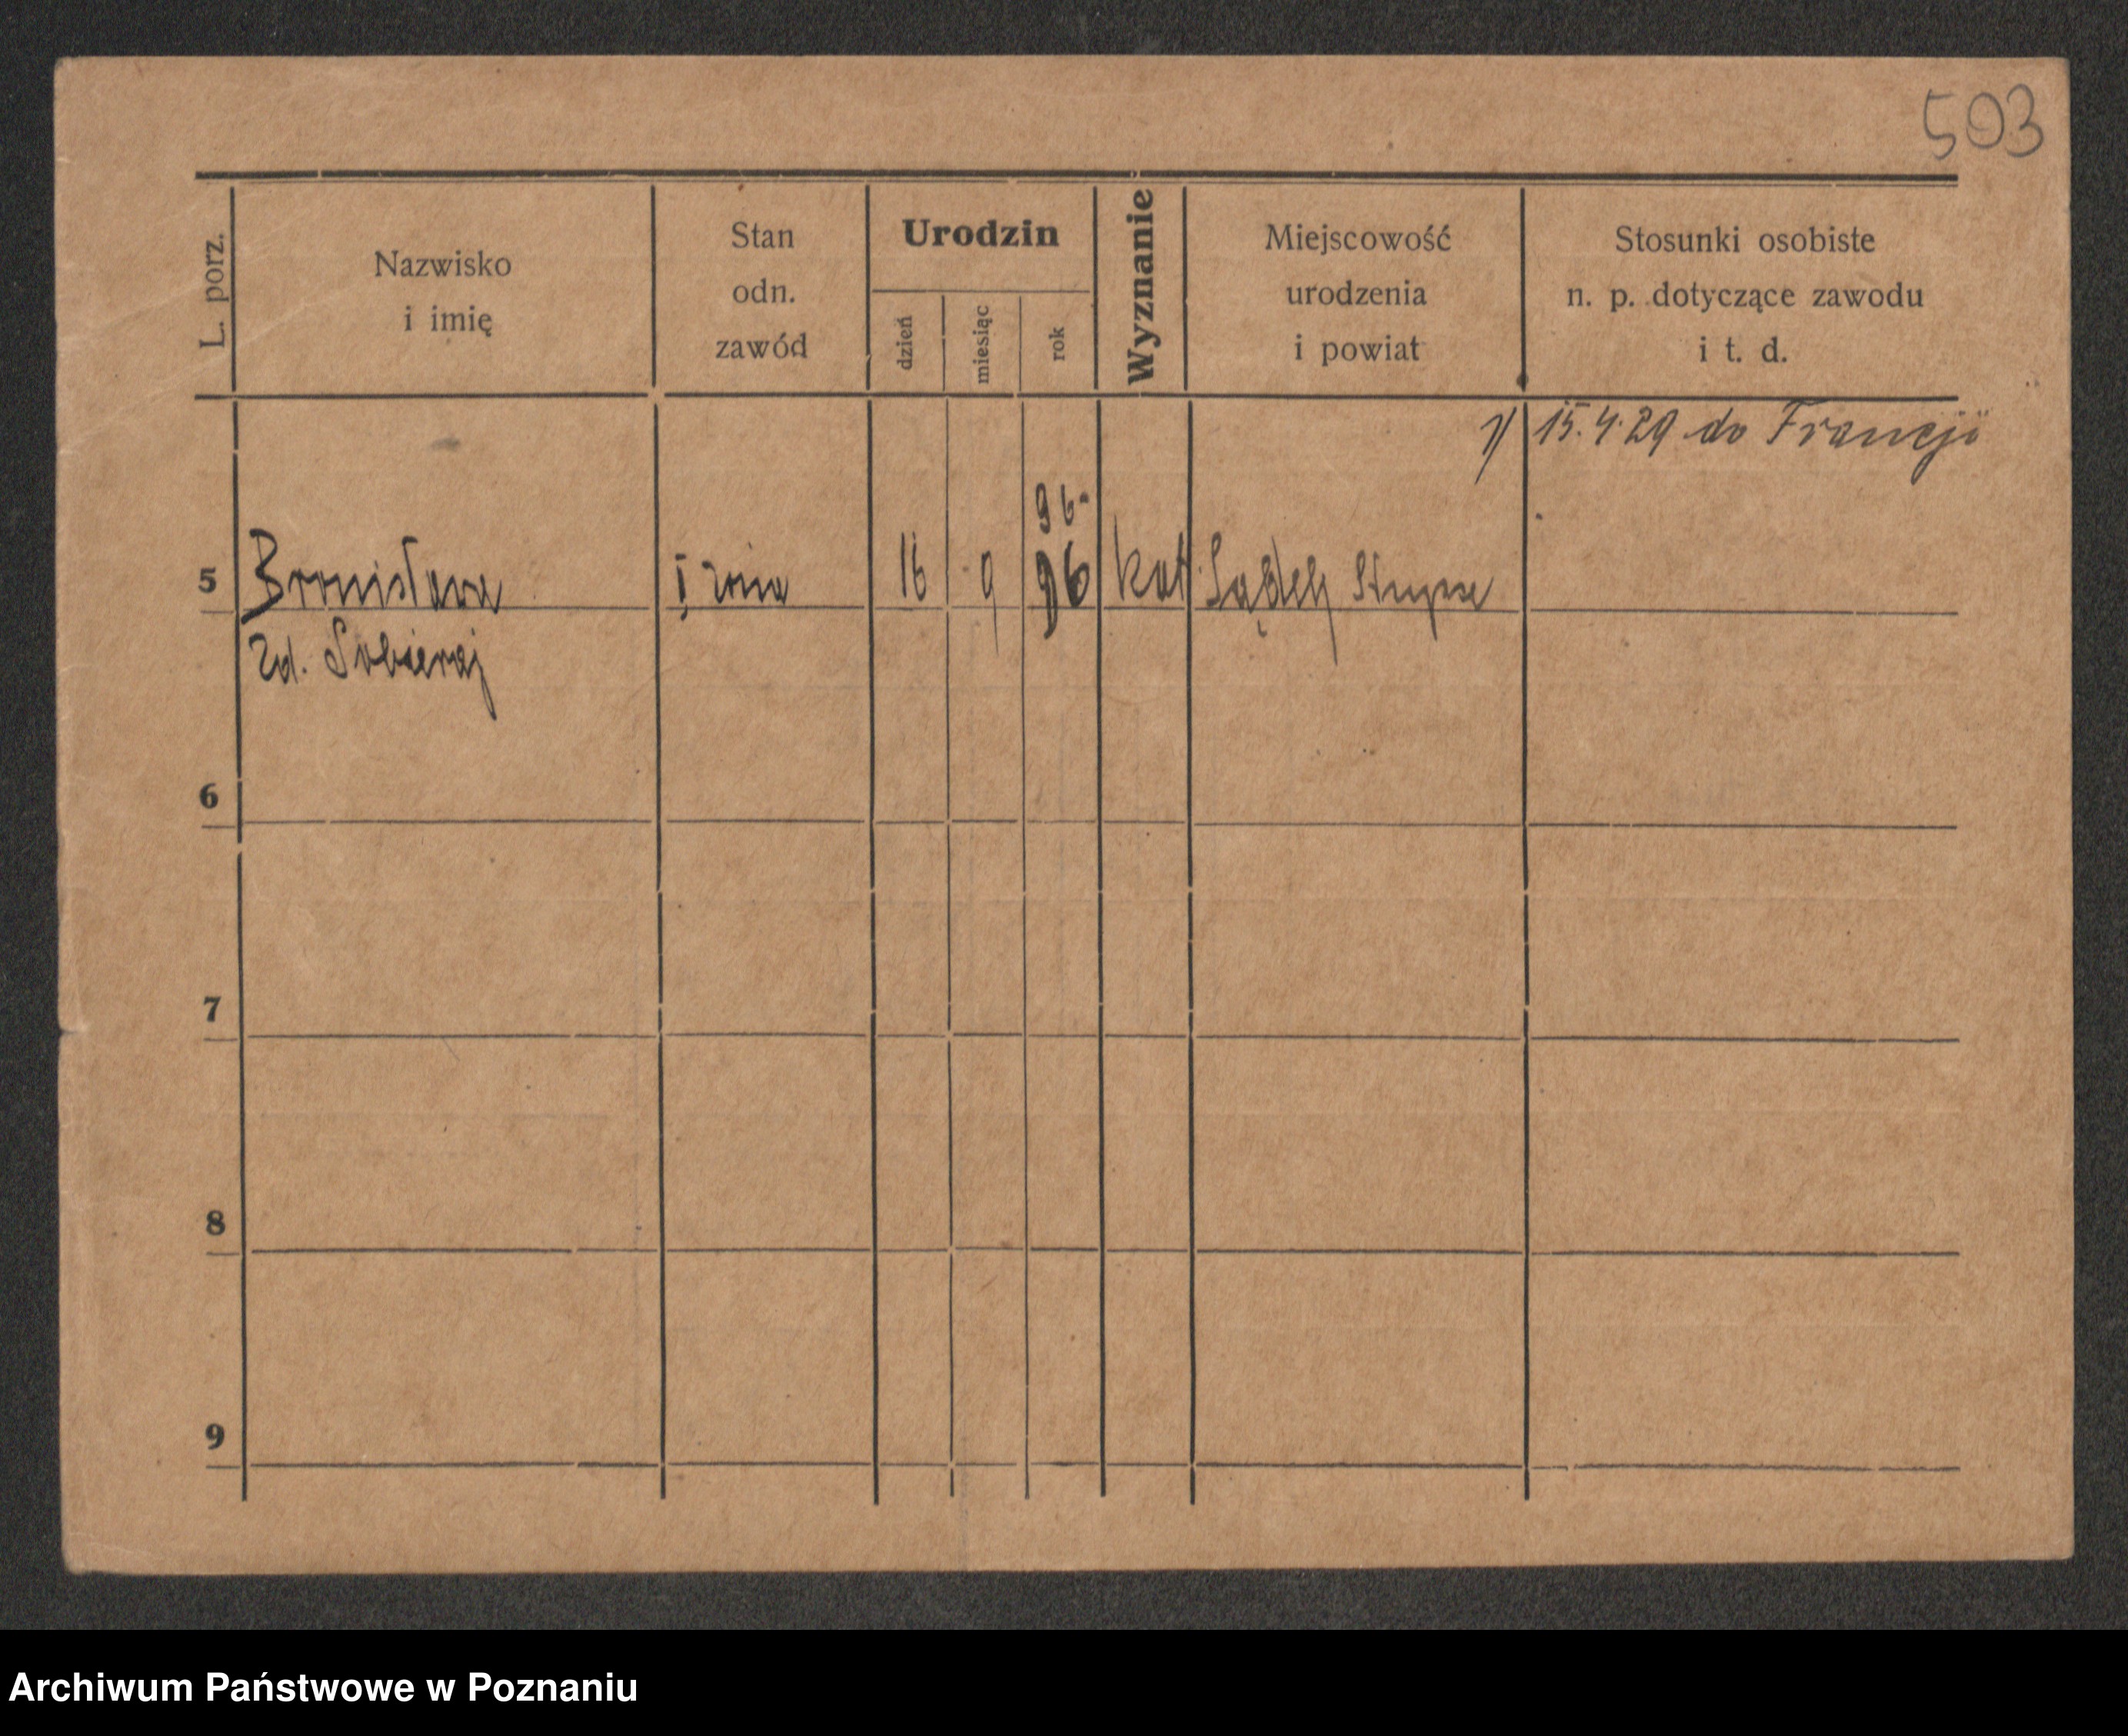 503
L. porz.
Nazwisko
i imię
Stan
odn.
zawód
Urodzin
dzień
miesiąc
rok
Wyznanie
Miejscowość
urodzenia
i powiat
Stosunki osobiste
n. p. dotyczące zawodu
i t. d.
1/ 15.4.29 do Francji
96.
5 Bronisława I żona 16 9 96 kat.
zd. Sobieraj
6
7
8
9
Archiwum Państwowe w Poznaniu